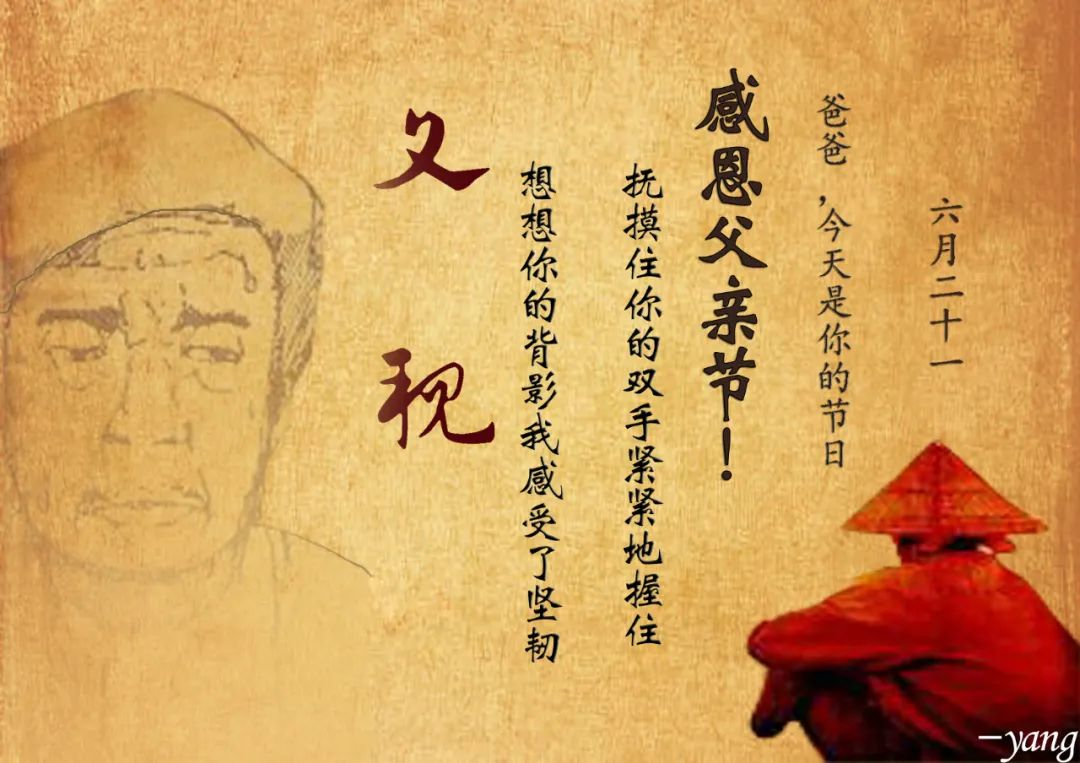 六月二十一
爸爸,今天是你的节日
感恩父亲节!
抚摸住你的双手紧紧地握住
想想你的背影我感受了坚韧
父親
-yang